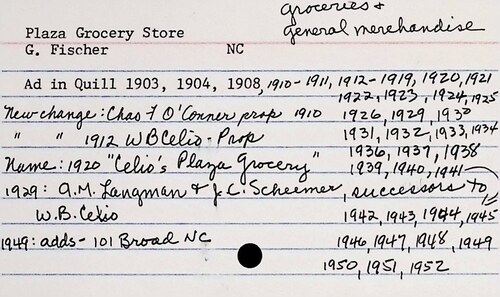 groceries &
general merchandise
Plaza Grocery Store
G. Fischer NC
Ad in Quill 1903, 1904, 1908, 1910-1911, 1912-1919, 1920, 1921
1922, 1923, 1924, 1925
New change: Chas F O'Conner prop 1910 1926, 1929, 1930
" " 1912 W B Celio - Prop 1931, 1932, 1933, 1934
1936, 1937, 1938
Name: 1920 "Celio's Plaza Grocery" 1939, 1940, 1941
1929: A.M. Langman & J.C. Scheemer, successors to
W.B. Celio 1942, 1943, 1944, 1945
1949: adds - 101 Broad NC 1946, 1947, 1948, 1949
1950, 1951, 1952